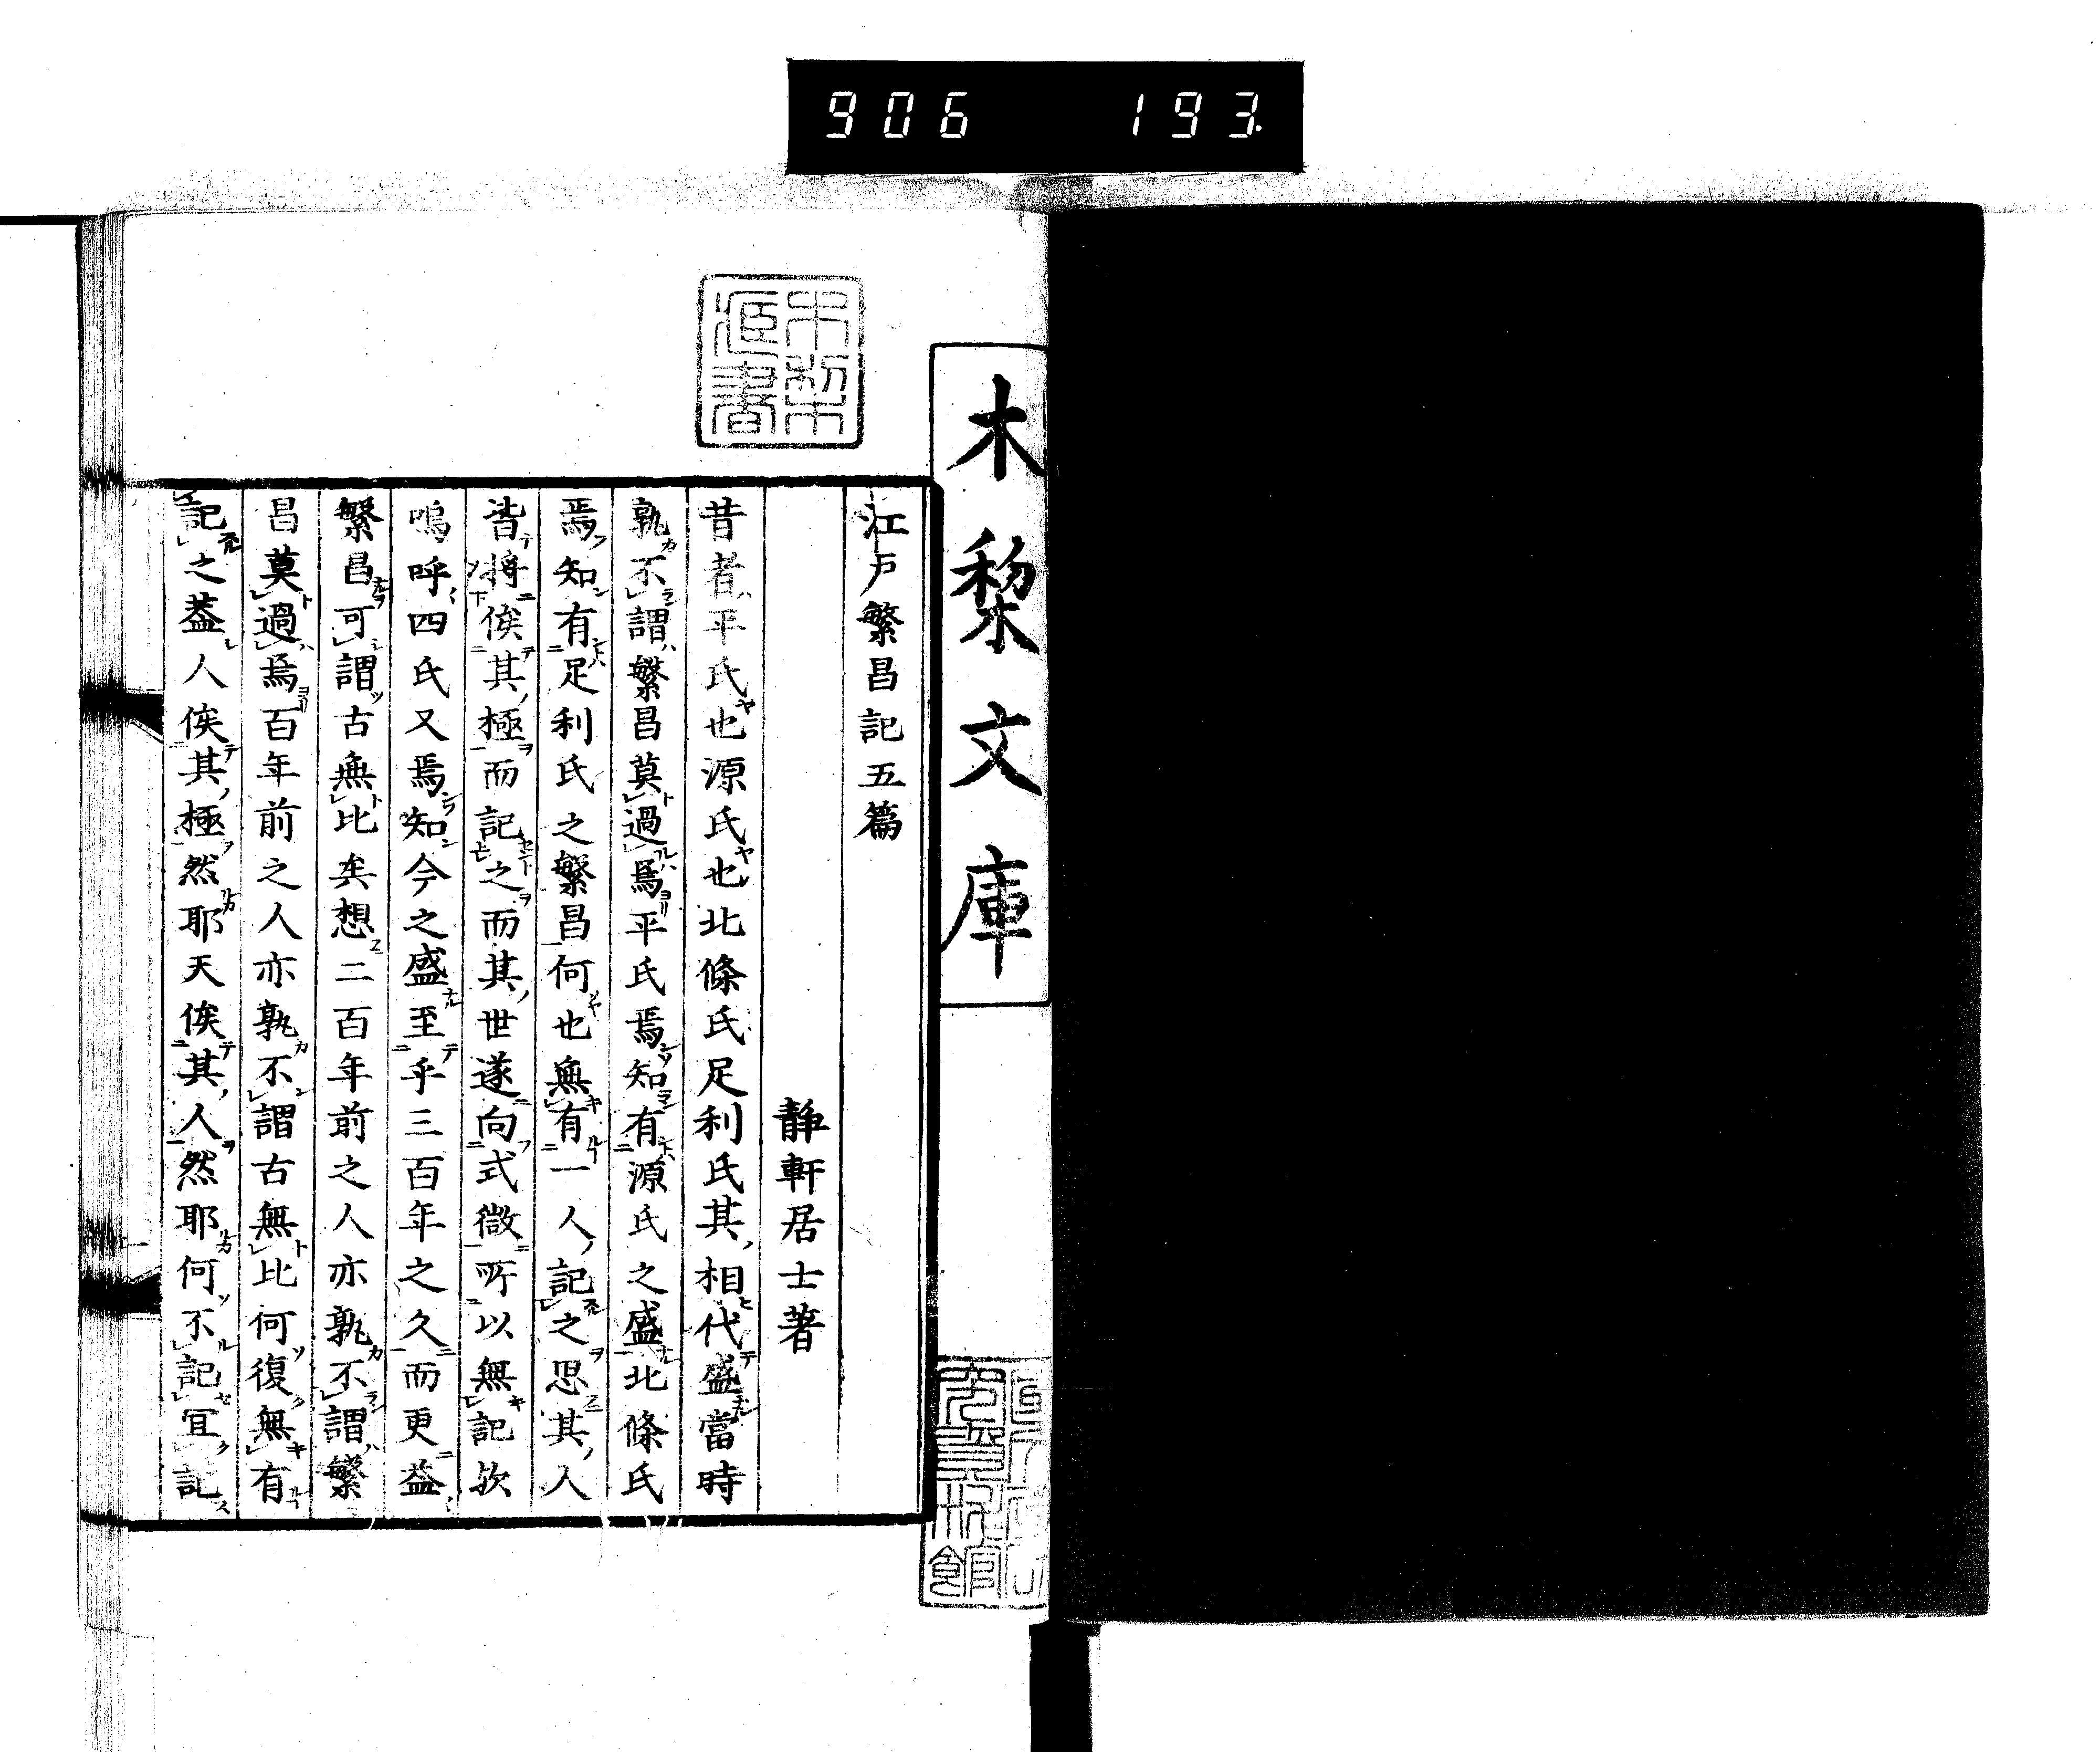 906 193.
木犂文庫
江戸繁昌記五篇
靜軒居士著
昔者平氏也源氏也北條氏足利氏其相代盛當時
孰不謂繁昌莫過焉平氏焉知有源氏之盛北條氏
焉知有足利氏之繁昌何也無有一人記之思其人
皆將俟其極而記之而其世遂向式微所以無記欤
嗚呼四氏又焉知今之盛至乎三百年之久而更益
繁昌可謂古無比矣想二百年前之人亦孰不謂繁
昌莫過焉百年前之人亦孰不謂古無比何復無有
記之葢人俟其極然耶天俟其人然耶何不記冝記